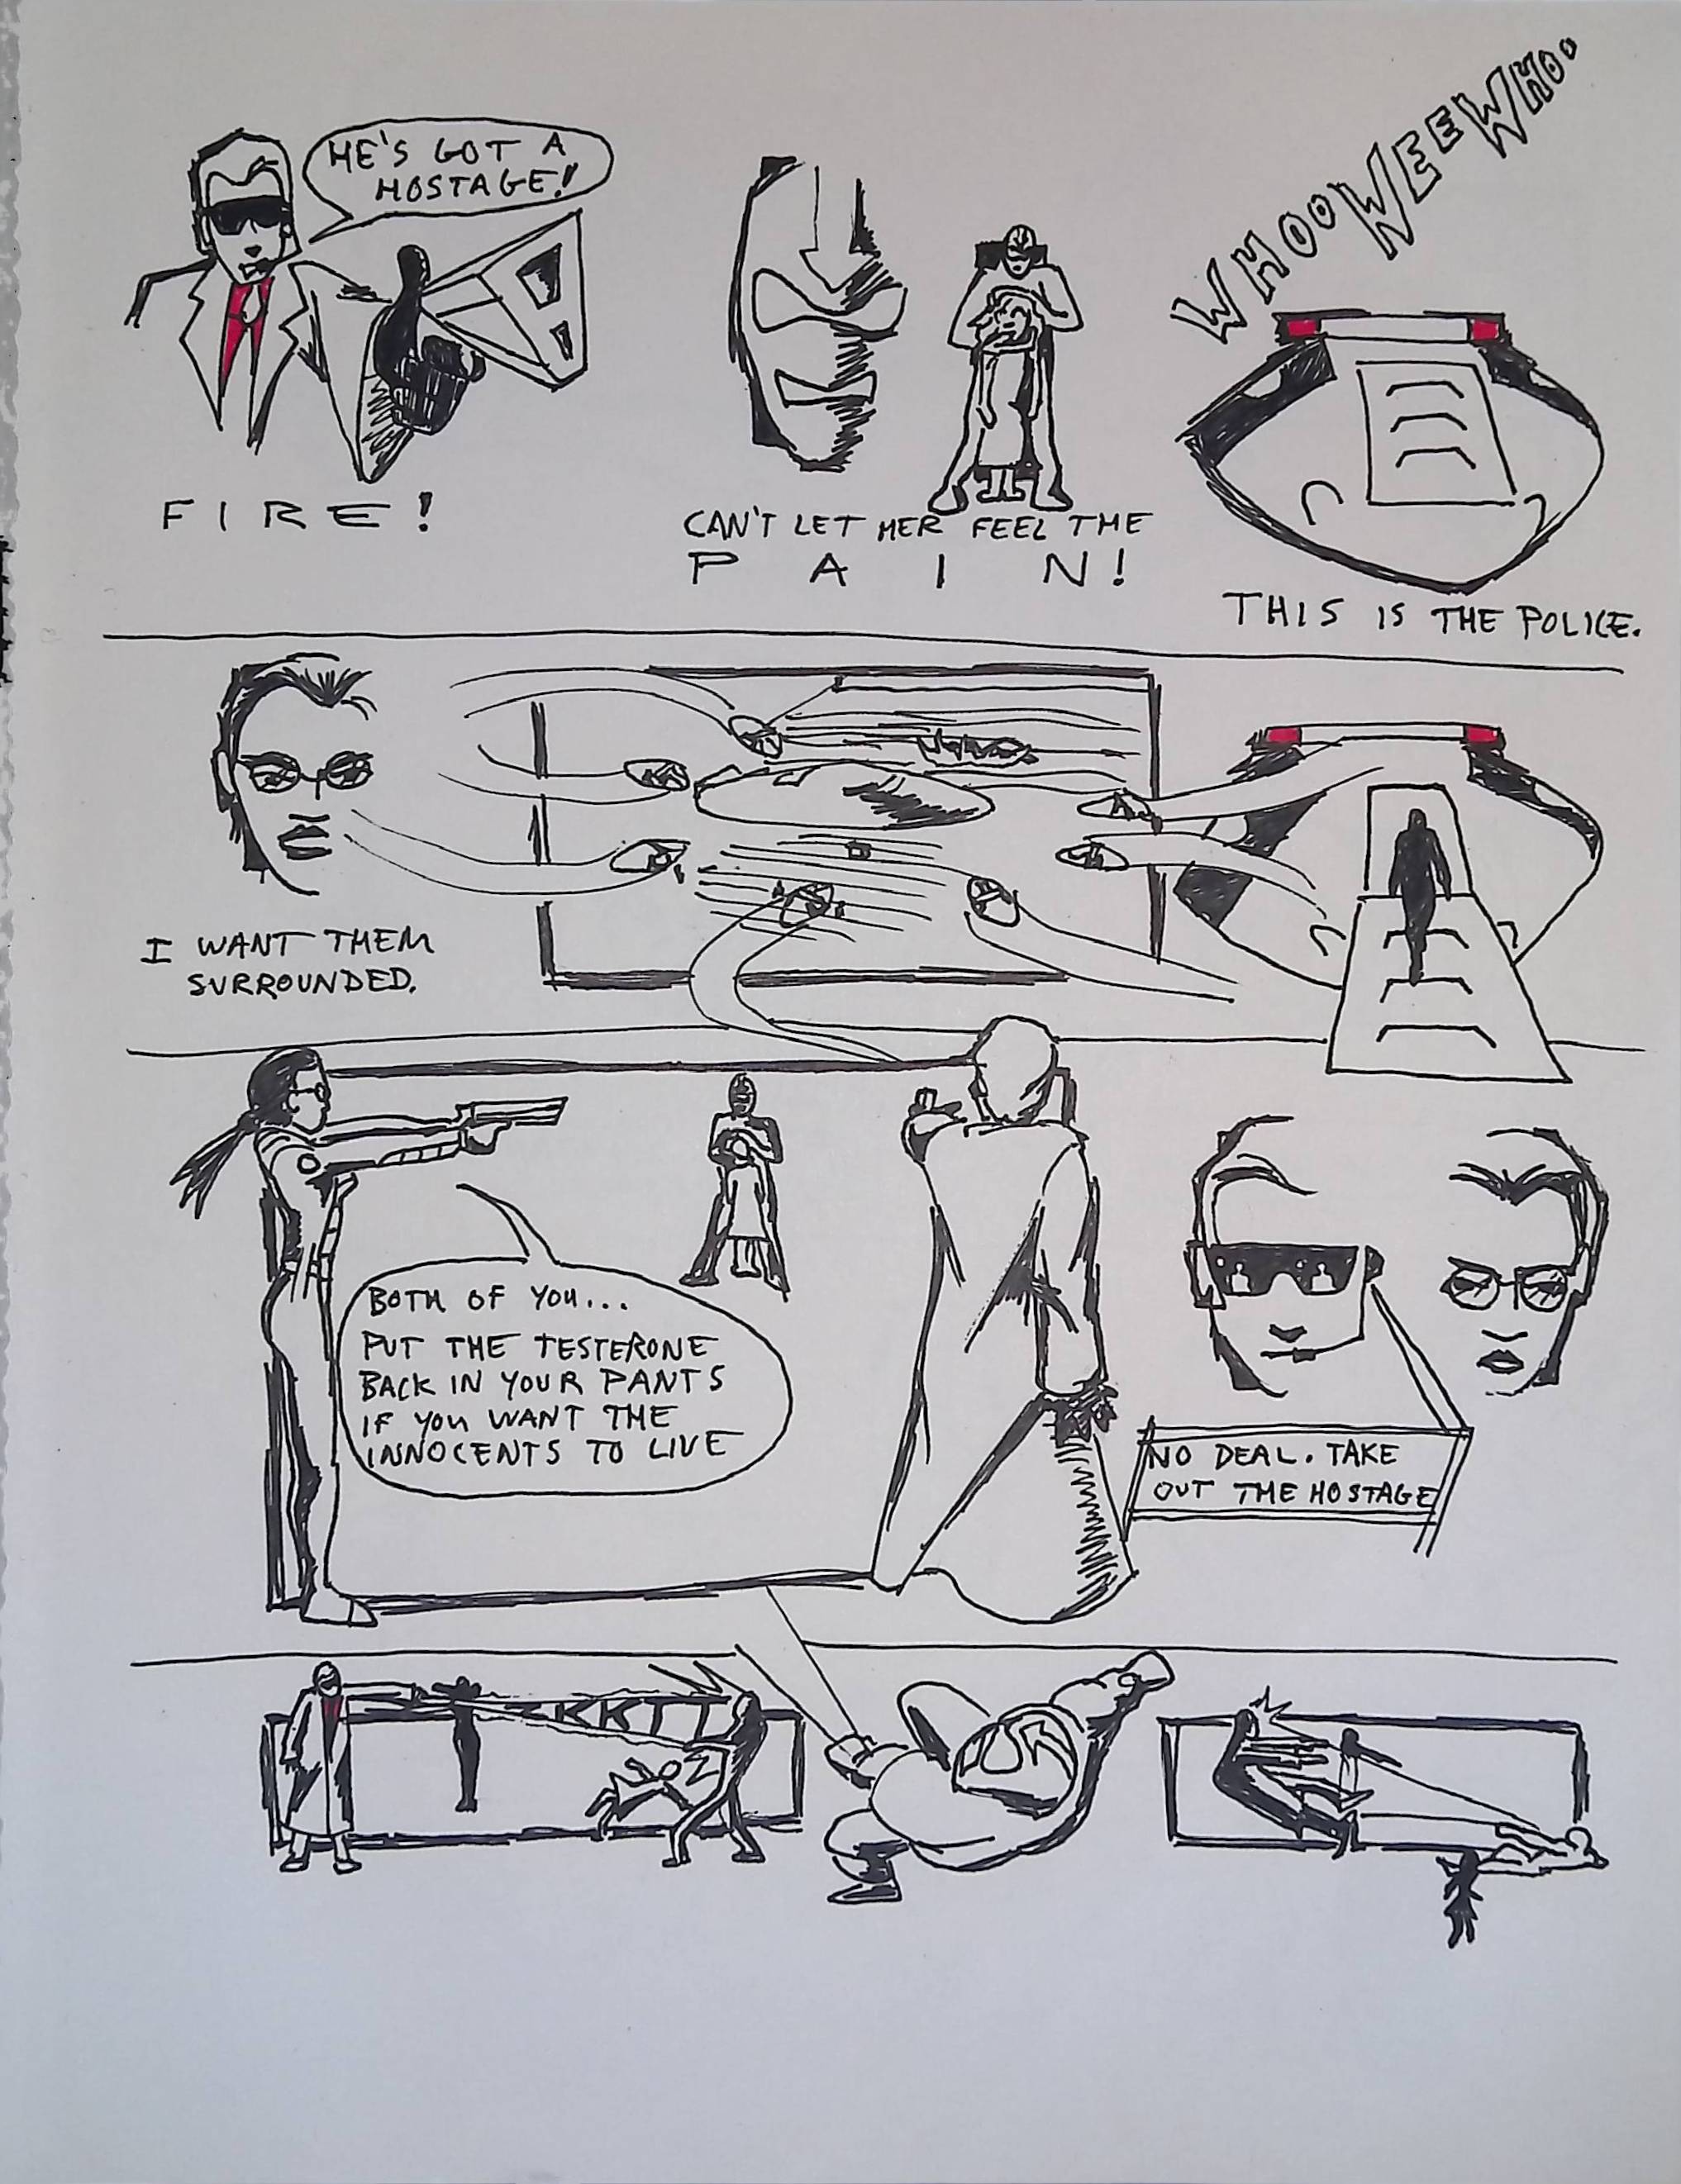 HE'S GOT A
HOSTAGE!
FIRE!
CAN'T LET HER FEEL THE
PAIN!
WHOO WEEE WHOO
THIS IS THE POLICE.
I WANT THEM
SURROUNDED.
BOTH OF YOU...
PUT THE TESTERONE
BACK IN YOUR PANTS
IF YOU WANT THE
INNOCENTS TO LIVE
NO DEAL. TAKE
OUT THE HOSTAGE
ZKKTT